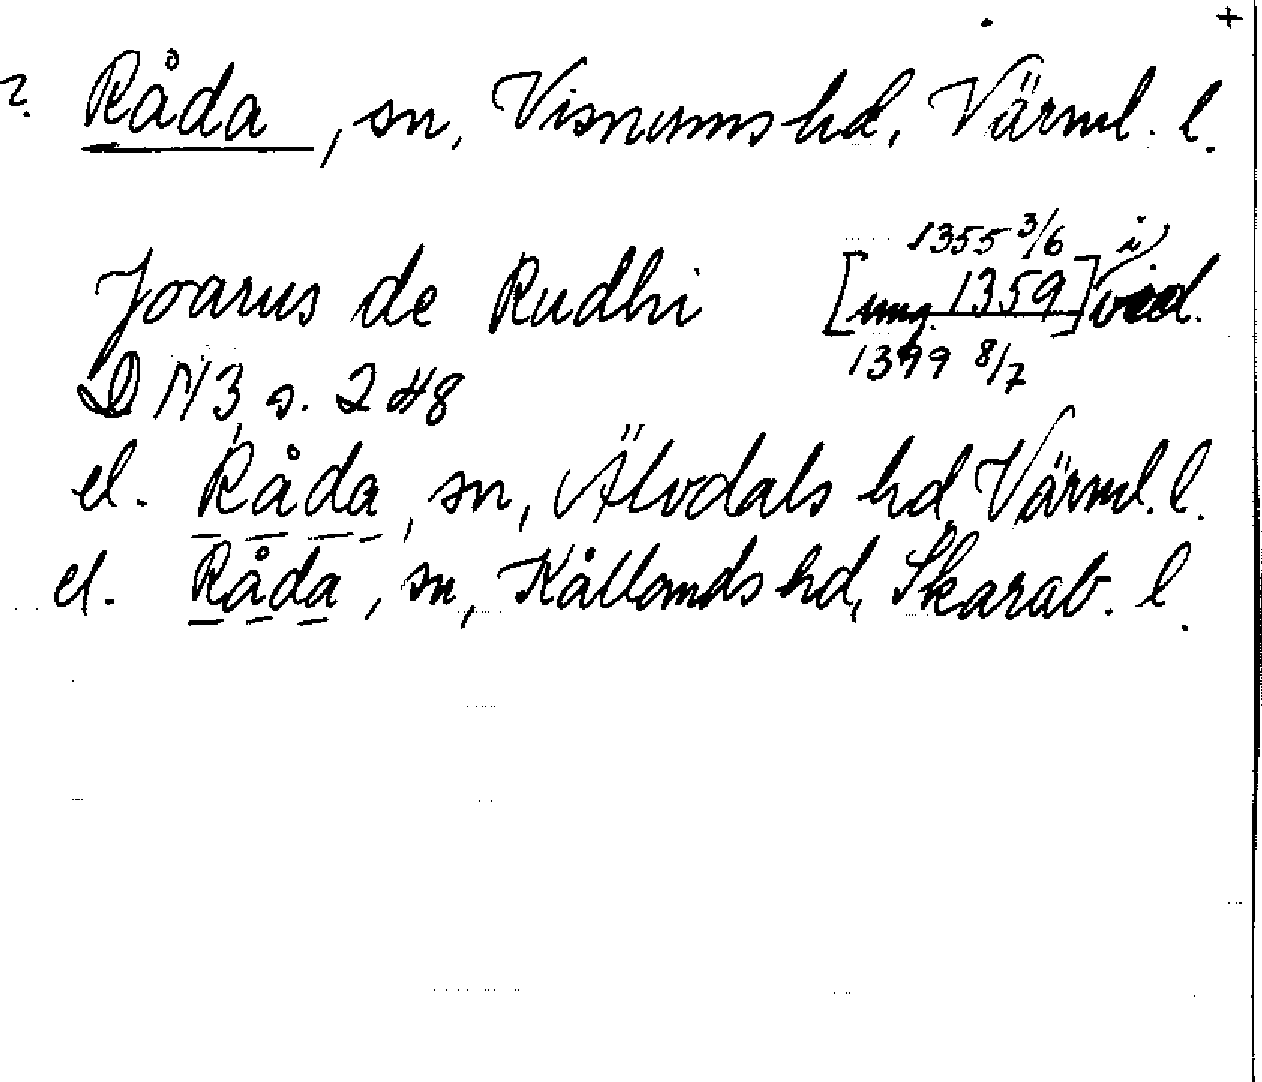 +
?. Råda, sn, Visnums hd, Värml. l.
1355 3/6 i
Joarus de Rudhi [omg. 1359] vid.
1399 8/7
DN 3, s. 248
el. Råda, sn, Älvdals hd, Värml. l.
el. Råda, sn, Kållands hd, Skarab. l.